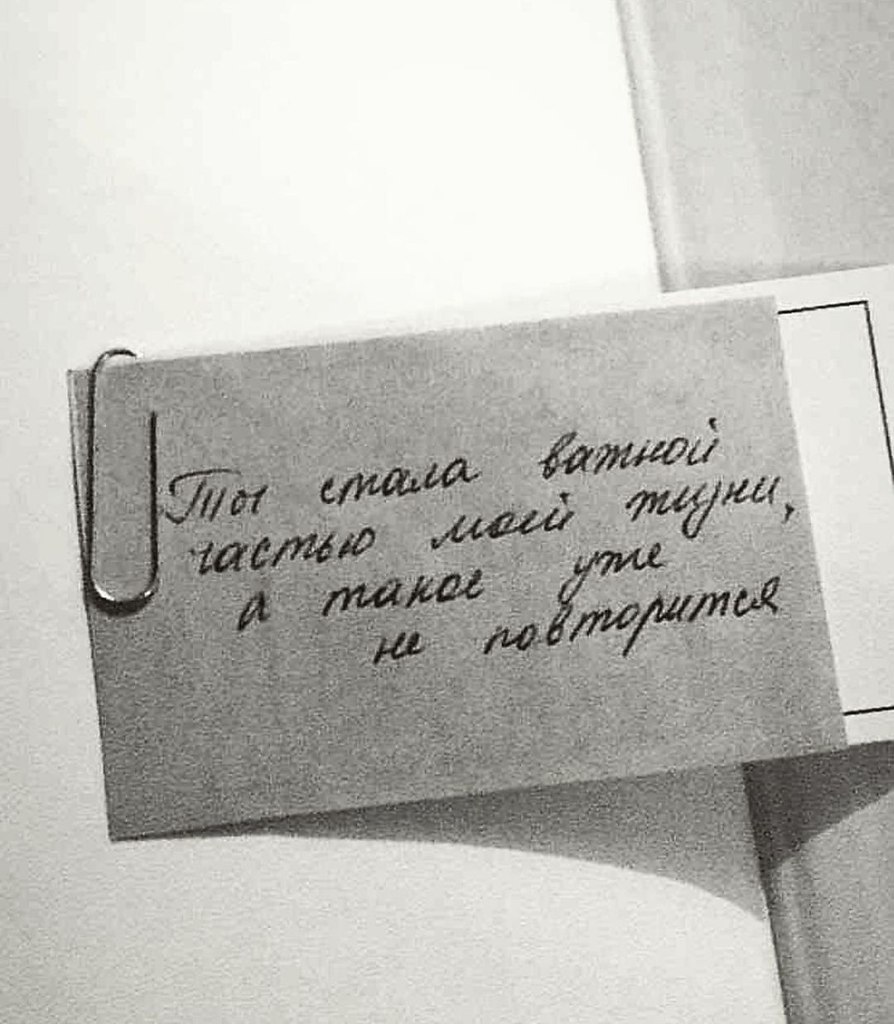 Ты стала важной
частью моей жизни,
а такое уже
не повторится